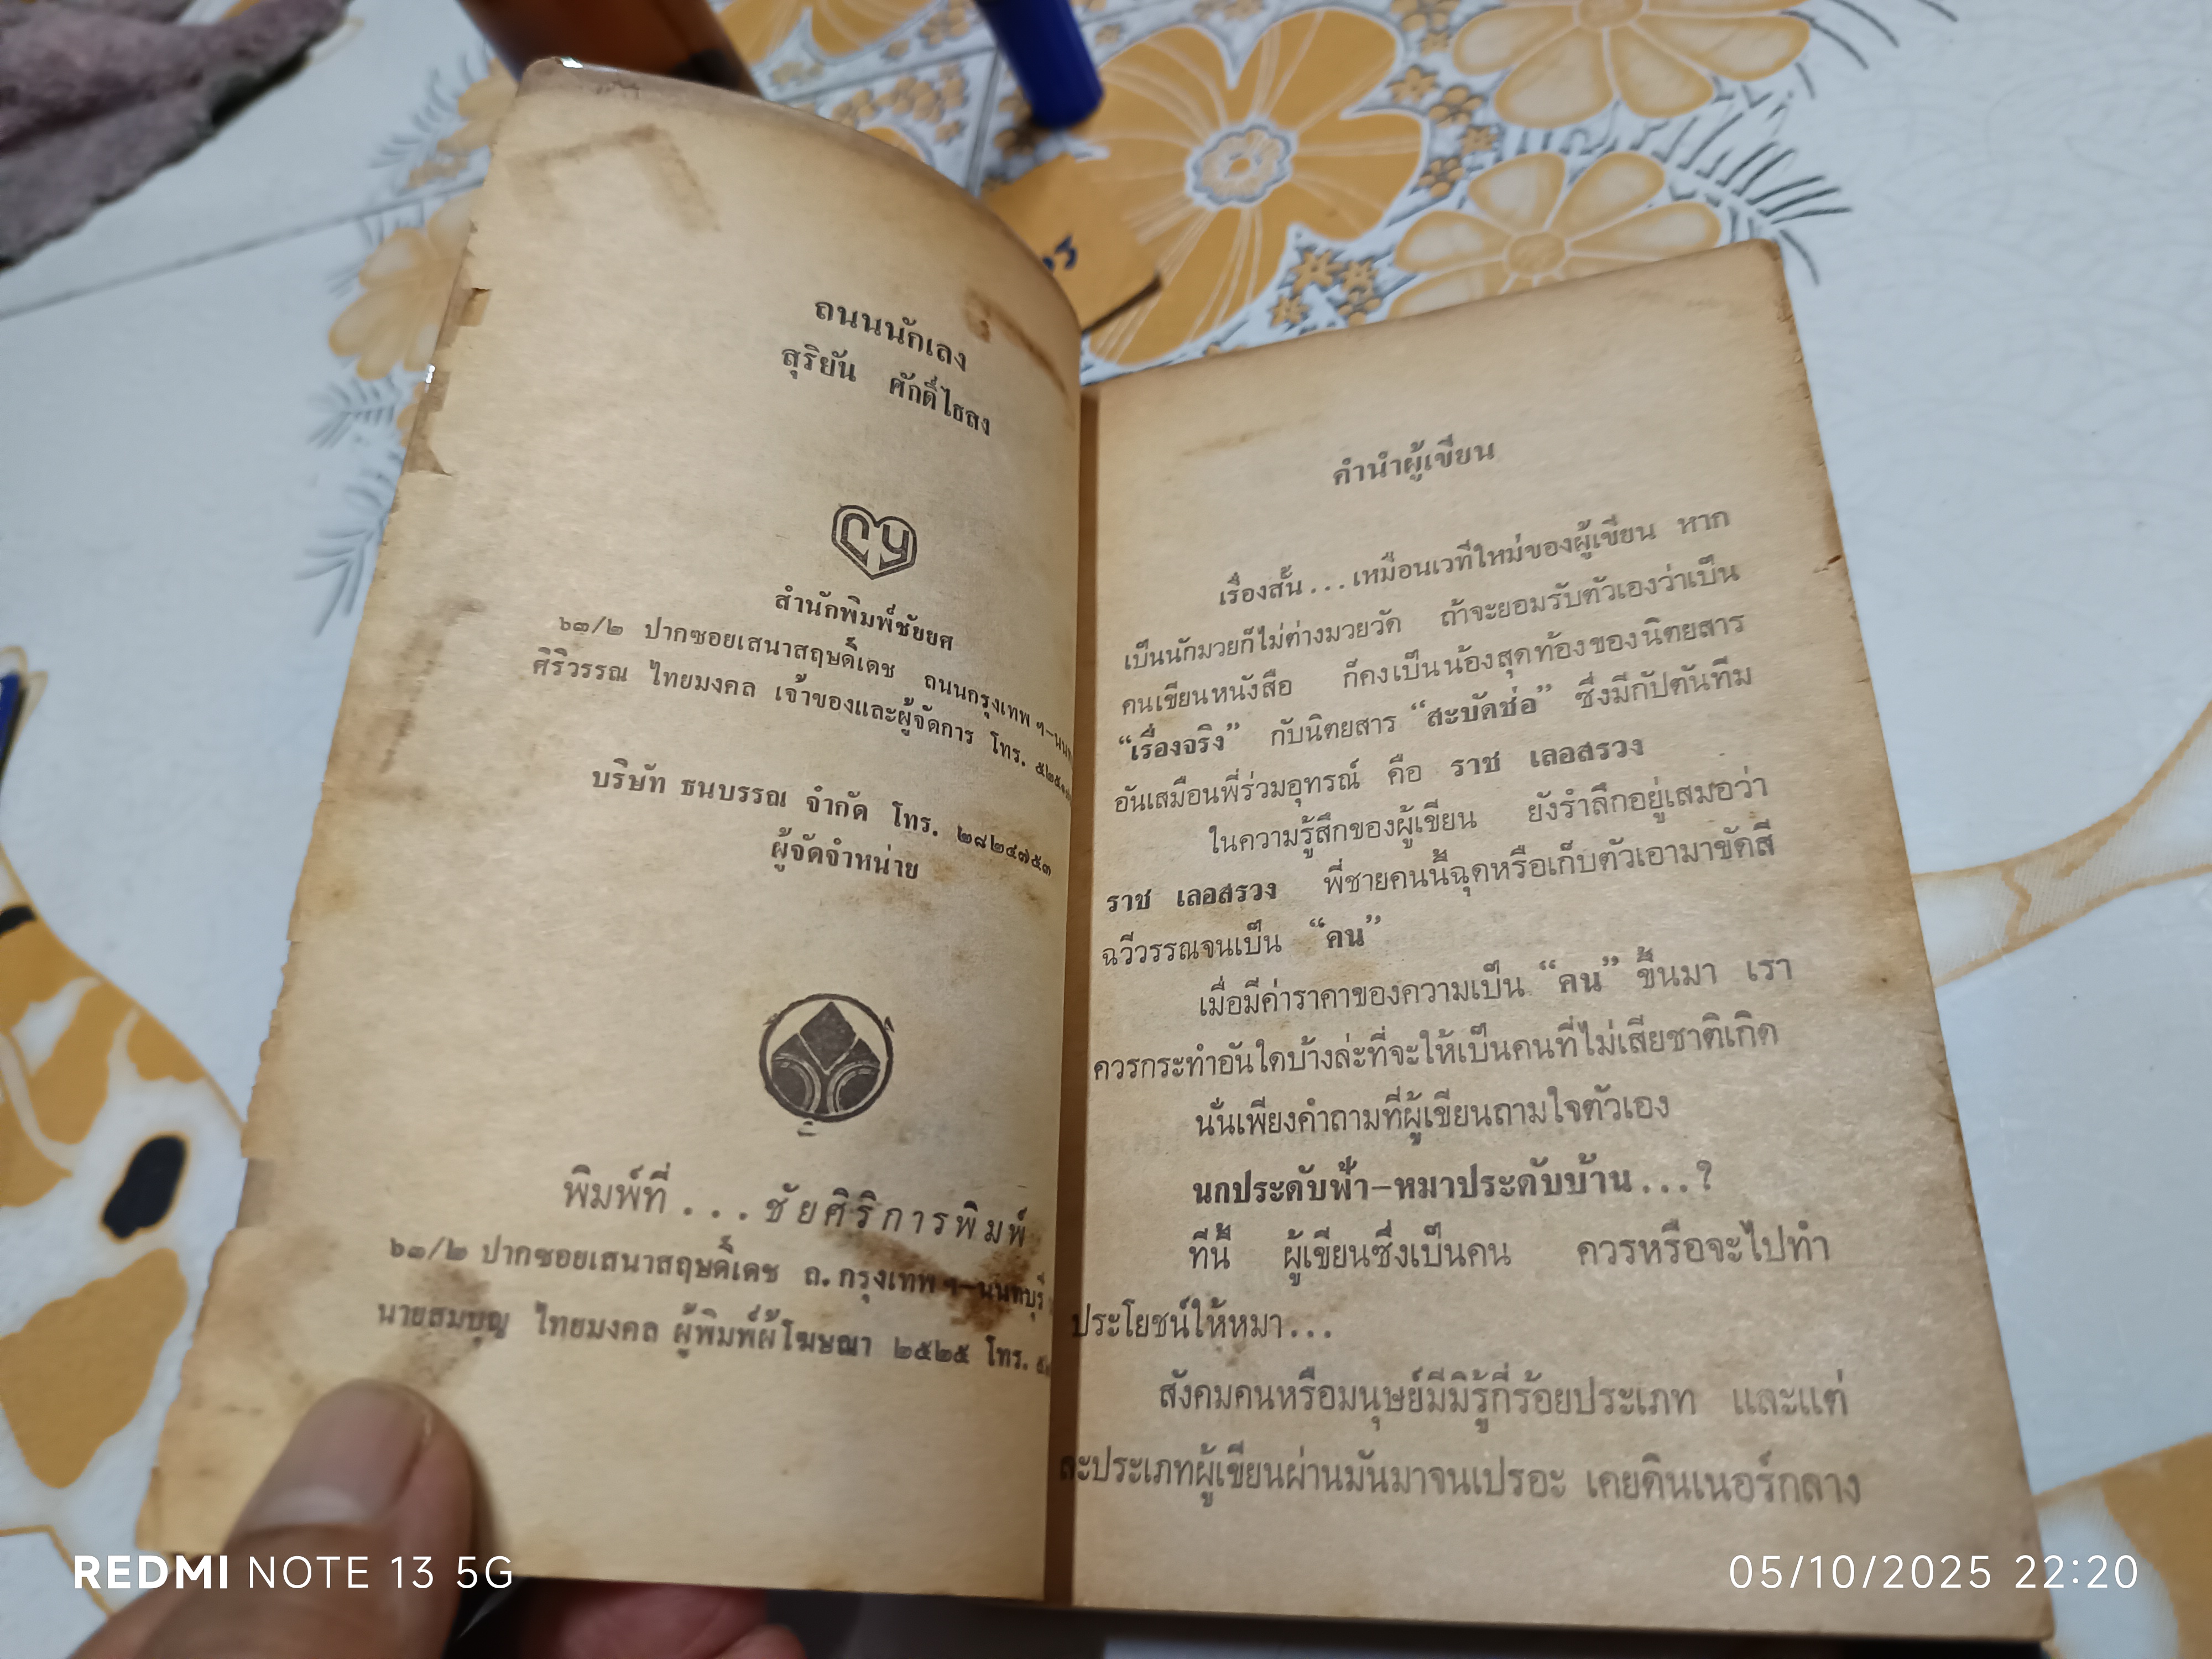 ถนนนักเลง
สุริยัน ศักดิ์ไธสง
สำนักพิมพ์ชัยยศ
๖๓/๒ ปากซอยเสนาสฤษดิ์เดช ถนนกรุงเทพ ฯ–นนท
ศิริวรรณ ไทยมงคล เจ้าของและผู้จัดการ โทร.
บริษัท ธนบรรณ จำกัด โทร. ๒๘๒๔๗๕๓
ผู้จัดจำหน่าย
พิมพ์ที่ . . . ชัยศิริการพิมพ์
๖๓/๒ ปากซอยเสนาสฤษดิ์เดช ถ. กรุงเทพ ฯ–นนทบุรี
นายสมบุญ ไทยมงคล ผู้พิมพ์ผู้โฆษณา ๒๕๒๕ โทร.
คำนำผู้เขียน
เรื่องสั้น . . . เหมือนเวทีใหม่ของผู้เขียน หาก
เป็นนักมวยก็ไม่ต่างมวยวัด ถ้าจะยอมรับตัวเองว่าเป็น
คนเขียนหนังสือ ก็คงเป็นน้องสุดท้องของนิตยสาร
“เรื่องจริง” กับนิตยสาร “สะบัดช่อ” ซึ่งมีกัปตันทีม
อันเสมือนพี่ร่วมอุทรณ์ คือ ราช เลอสรวง
ในความรู้สึกของผู้เขียน ยังรำลึกอยู่เสมอว่า
ราช เลอสรวง พี่ชายคนนี้ฉุดหรือเก็บตัวเอามาขัดสี
ฉวีวรรณจนเป็น “คน”
เมื่อมีค่าราคาของความเป็น “คน” ขึ้นมา เรา
ควรกระทำอันใดบ้างล่ะที่จะให้เป็นคนที่ไม่เสียชาติเกิด
นั่นเพียงคำถามที่ผู้เขียนถามใจตัวเอง
นกประดับฟ้า–หมาประดับบ้าน . . . ?
ทีนี้ ผู้เขียนซึ่งเป็นคน ควรหรือจะไปทำ
ประโยชน์ให้หมา . . .
สังคมคนหรือมนุษย์มีมิรู้กี่ร้อยประเภท และแต่
ละประเภทผู้เขียนผ่านมันมาจนเปรอะ เคยดินเนอร์กลาง
REDMI NOTE 13 5G
05/10/2025 22:20